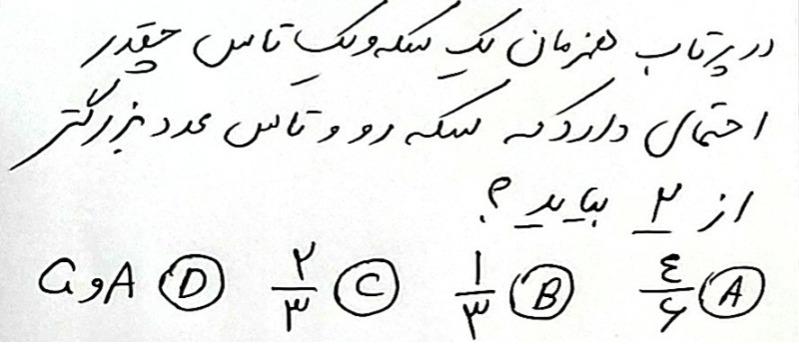 در پرتاب همزمان یک سکه و یک تاس چقدر
احتمال دارد که سکه رو و تاس عدد بزرگتر
از ۲ بیاید ؟
A ٤/۶ B ۱/۳ C ۲/۳ D A و C